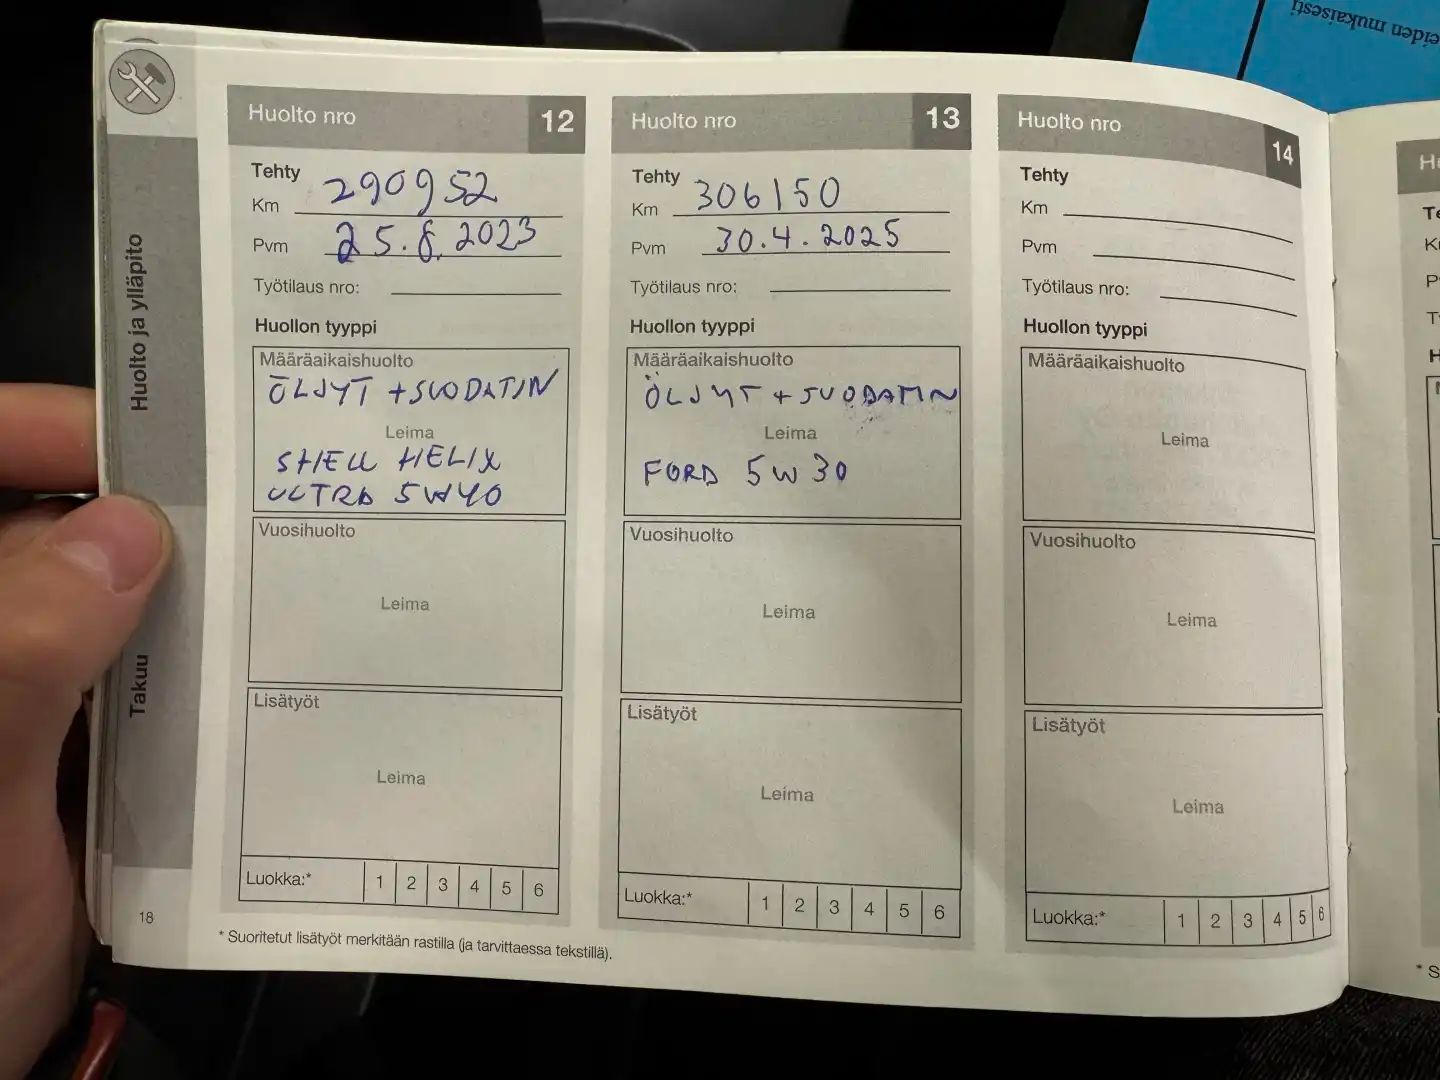 eiden mukaisesti
Huolto ja ylläpito
Takuu
Huolto nro 12
Tehty
Km 290952
Pvm 25.8.2023
Työtilaus nro:
Huollon tyyppi
Määräaikaishuolto
ÖLJYT + SUODATIN
Leima
SHELL HELIX
ULTRA 5W40
Vuosihuolto
Leima
Lisätyöt
Leima
Luokka:* 1 2 3 4 5 6
Huolto nro 13
Tehty
Km 306150
Pvm 30.4.2025
Työtilaus nro:
Huollon tyyppi
Määräaikaishuolto
ÖLJYT + SUODATIN
Leima
FORD 5W30
Vuosihuolto
Leima
Lisätyöt
Leima
Luokka:* 1 2 3 4 5 6
Huolto nro 14
Tehty
Km
Pvm
Työtilaus nro:
Huollon tyyppi
Määräaikaishuolto
Leima
Vuosihuolto
Leima
Lisätyöt
Leima
Luokka:* 1 2 3 4 5 6
18
* Suoritetut lisätyöt merkitään rastilla (ja tarvittaessa tekstillä).